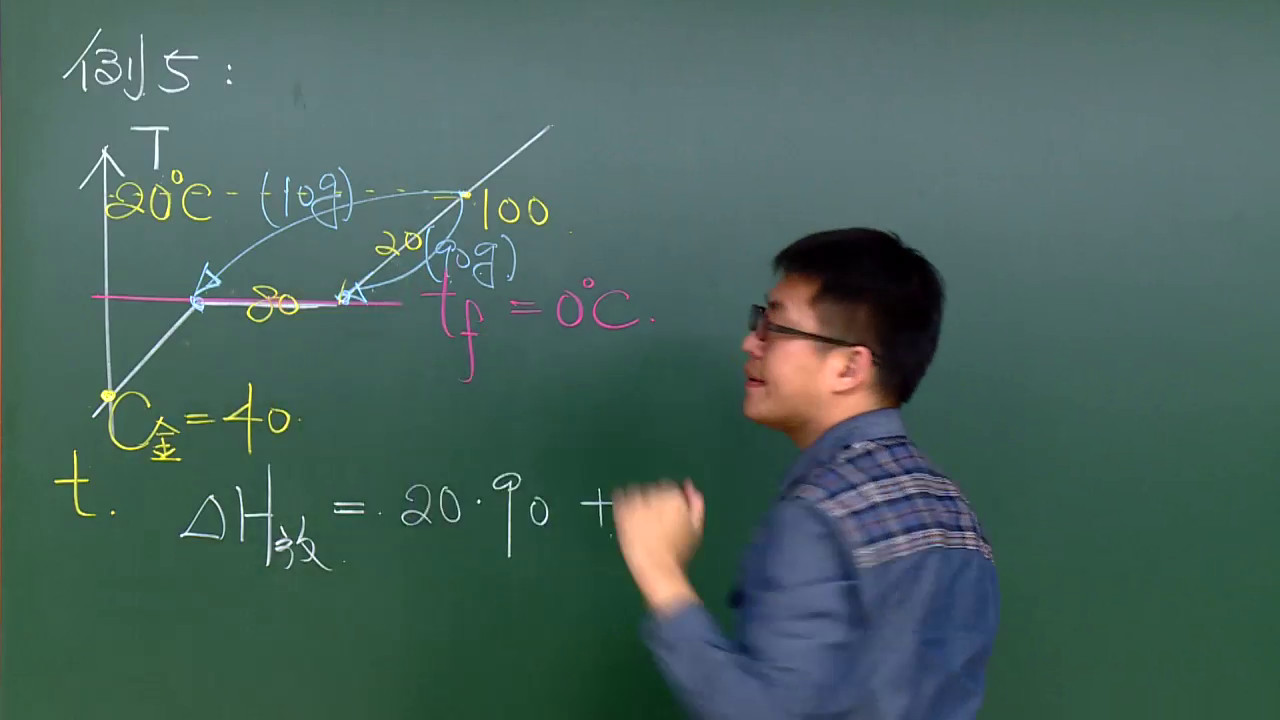 例5:
T
20°C (10g) 100
20 (90g)
80 tf = 0°C.
C金 = 40.
t. ΔH放 = 20·90 +